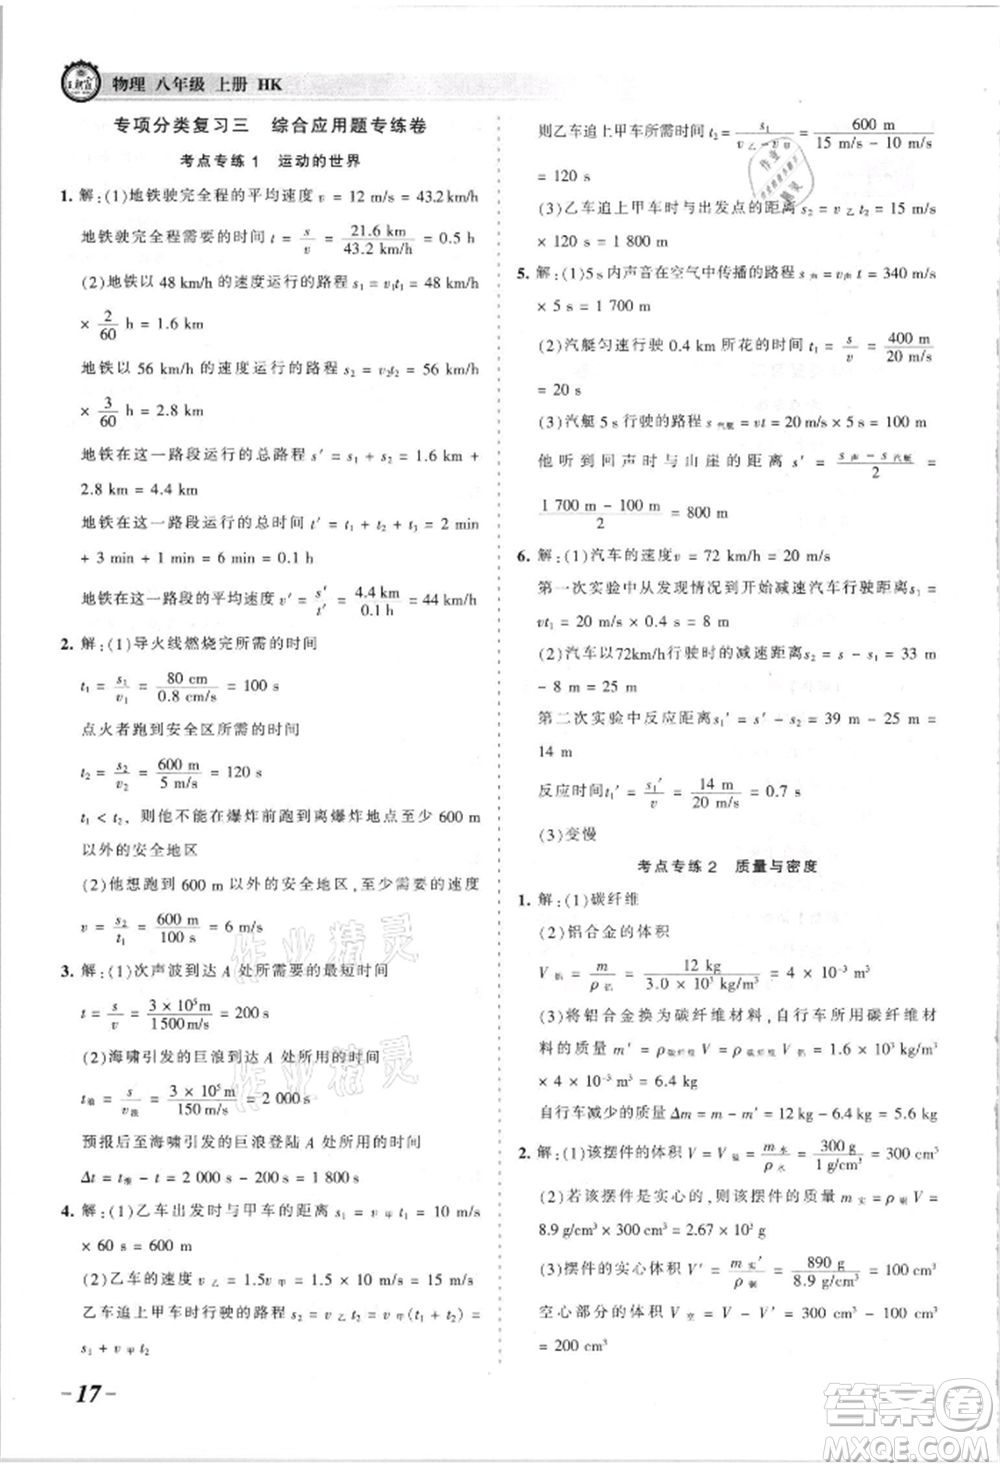 王朝霞 物理 八年级 上册 HK
专项分类复习三 综合应用题专练卷
考点专练1 运动的世界
1. 解:(1)地铁驶完全程的平均速度 v = 12 m/s = 43.2 km/h
地铁驶完全程需要的时间 t = s/v = 21.6 km/43.2 km/h = 0.5 h
(2)地铁以 48 km/h 的速度运行的路程 s₁ = v₁t₁ = 48 km/h
× 2/60 h = 1.6 km
地铁以 56 km/h 的速度运行的路程 s₂ = v₂t₂ = 56 km/h
× 3/60 h = 2.8 km
地铁在这一路段运行的总路程 s′ = s₁ + s₂ = 1.6 km +
2.8 km = 4.4 km
地铁在这一路段运行的总时间 t′ = t₁ + t₂ + t₃ = 2 min
+ 3 min + 1 min = 6 min = 0.1 h
地铁在这一路段的平均速度 v′ = s′/t′ = 4.4 km/0.1 h = 44 km/h
2. 解:(1)导火线燃烧完所需的时间
t₁ = s₁/v₁ = 80 cm/0.8 cm/s = 100 s
点火者跑到安全区所需的时间
t₂ = s₂/v₂ = 600 m/5 m/s = 120 s
t₁ < t₂, 则他不能在爆炸前跑到离爆炸地点 600 m
以外的安全地区
(2)他想跑到 600 m 以外的安全地区,至少需要的速度
v = s₂/t₁ = 600 m/100 s = 6 m/s
3. 解:(1)次声波到达 A 处所需要的最短时间
t = s/v = 3 × 10⁵ m/1 500 m/s = 200 s
(2)海啸引发的巨浪到达 A 处所用的时间
t浪 = s/v浪 = 3 × 10⁵ m/150 m/s = 2 000 s
预报后至海啸引发的巨浪登陆 A 处所用的时间
Δt = t浪 - t = 2 000 s - 200 s = 1 800 s
4. 解:(1)乙车出发时与甲车的距离 s₁ = v甲t₁ = 10 m/s
× 60 s = 600 m
(2)乙车的速度 v乙 = 1.5v甲 = 1.5 × 10 m/s = 15 m/s
乙车追上甲车时行驶的路程 s₂ = v乙t₂ = s₁ + s甲 =
s₁ + v甲t₂
则乙车追上甲车所需时间 t₂ = s₁/v乙 - v甲 = 600 m/15 m/s - 10 m/s
= 120 s
(3)乙车追上甲车时与出发点的距离 s₂ = v乙t₂ = 15 m/s
× 120 s = 1 800 m
5. 解:(1)5 s 内声音在空气中传播的路程 s声 = v声t = 340 m/s
× 5 s = 1 700 m
(2)汽艇匀速行驶 0.4 km 所花的时间 t₁ = s/v = 400 m/20 m/s
= 20 s
(3)汽艇 5 s 行驶的路程 s汽艇 = vt = 20 m/s × 5 s = 100 m
他听到回声时与山崖的距离 s′ = s声 - s汽艇/2 =
1 700 m - 100 m/2 = 800 m
6. 解:(1)汽车的速度 v = 72 km/h = 20 m/s
第一次实验从发现情况到开始减速汽车行驶的距离 s₁ =
vt₁ = 20 m/s × 0.4 s = 8 m
(2)汽车以72km/h行驶时的减速距离 s₂ = s - s₁ = 33 m
- 8 m = 25 m
第二次实验中反应距离 s₁′ = s′ - s₂ = 39 m - 25 m =
14 m
反应时间 t₁′ = s₁′/v = 14 m/20 m/s = 0.7 s
(3)变慢
考点专练2 质量与密度
1. 解:(1)碳纤维
(2)铝合金的体积
V铝 = m/ρ铝 = 12 kg/3.0 × 10³ kg/m³ = 4 × 10⁻³ m³
(3)将铝合金换为碳纤维材料,自行车所用碳纤维材
料的质量 m′ = ρ碳纤维V = ρ碳纤维V铝 = 1.6 × 10³ kg/m³
× 4 × 10⁻³ m³ = 6.4 kg
自行车减少的质量 Δm = m - m′ = 12 kg - 6.4 kg = 5.6 kg
2. 解:(1)该摆件的体积 V = V蜡 = m水/ρ水 = 300 g/1 g/cm³ = 300 cm³
(2)若该摆件是实心的,则该摆件的质量 m实 = ρ铜V =
8.9 g/cm³ × 300 cm³ = 2.67 × 10³ g
(3)摆件的实心体积 V′ = m实′/ρ铜 = 890 g/8.9 g/cm³ = 100 cm³
空心部分的体积 V空 = V - V′ = 300 cm³ - 100 cm³
= 200 cm³
作业精灵
作业精灵
作业精灵
- 17 -
答案圈
MXQE.COM